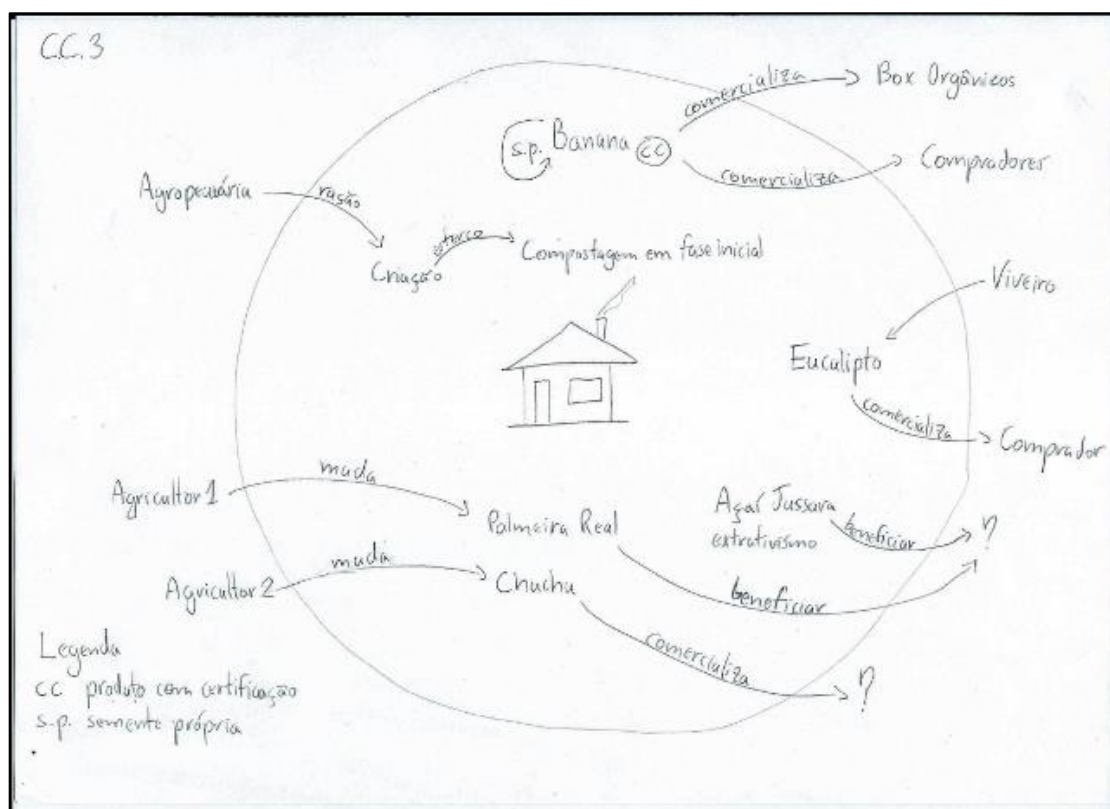 C.C.3
comercializa
Box Orgânicos
s.p. Banana cc
comercializa
Compradores
Agropecuária
ração
Criação
esterco
Compostagem em fase inicial
Viveiro
Eucalipto
comercializa
Comprador
Agricultor 1
muda
Palmeira Real
Açaí Jussara
extrativismo
beneficiar
?
Agricultor 2
muda
Chuchu
beneficiar
comercializa
?
Legenda
cc produto com certificação
s.p. semente própria